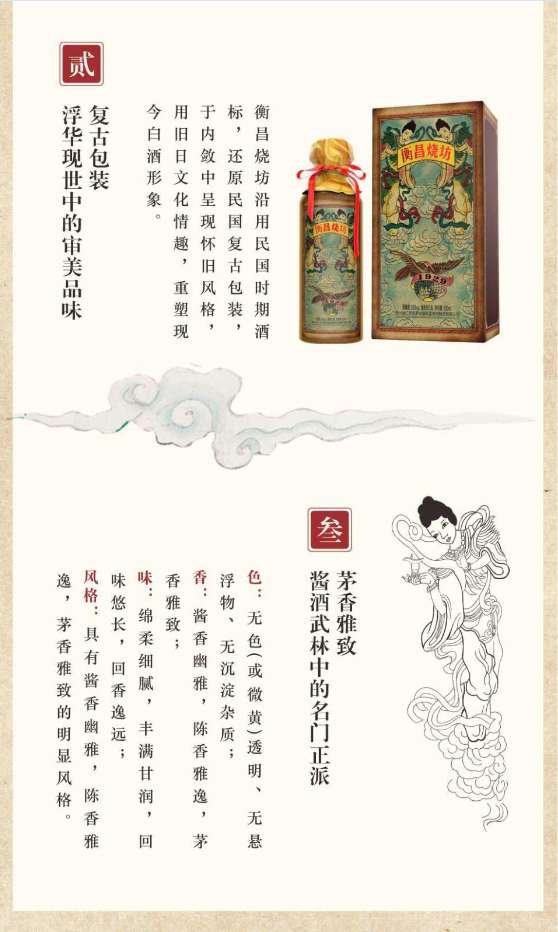 贰
复古包装
浮华现世中的审美品味
衡昌烧坊沿用民国时期酒
标，还原民国复古包装，
于内敛中呈现怀旧风格，
用旧日文化情趣，重塑现
今白酒形象。
衡昌烧坊
衡昌烧坊
1929
叁
茅香雅致
酱酒武林中的名门正派
色：无色(或微黄)透明、无悬
浮物、无沉淀杂质；
香：酱香幽雅，陈香雅逸，茅
香雅致；
味：绵柔细腻，丰满甘润，回
味悠长，回香逸远；
风格：具有酱香幽雅，陈香雅
逸，茅香雅致的明显风格。